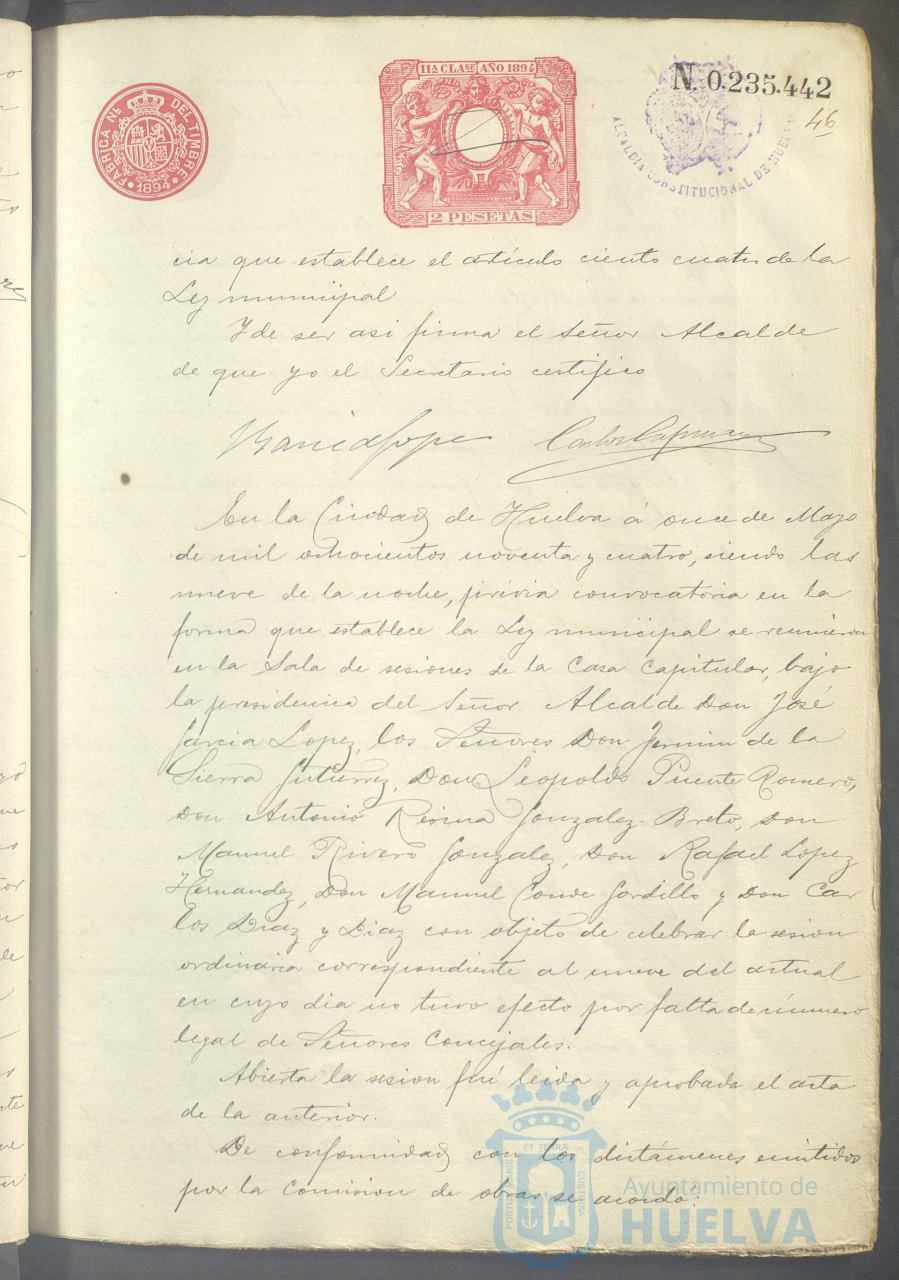 FÁBRICA NL. DEL TIMBRE
1894
11ª CLASE AÑO 1894
2 PESETAS
N. 0.235.442
46
ALCALDIA CONSTITUCIONAL DE HUELVA
cia que establece el artículo ciento cuatro de la
Ley municipal
Y de ser asi firma el Señor Alcalde
de que yo el Secretario certifico
En la Ciudad de Huelva á once de Mayo
de mil ochocientos noventa y cuatro, siendo las
nueve de la noche, prévia convocatoria en la
forma que establece la Ley municipal se reunieron
en la Sala de sesiones de la Casa Capitular, bajo
la presidencia del Señor Alcalde Don José
Garcia Lopez, los Señores Don Fermin de la
Sierra Gutierrez, Don Leopoldo Puente Romero,
Don Antonio Resina Gonzalez-Breto, Don
Manuel Rivero Gonzalez, Don Rafael Lopez
Hernandez, Don Manuel Conde Gordillo y Don Car
los Diaz y Diaz con objeto de celebrar la sesion
ordinaria correspondiente al nueve del actual
en cuyo dia no tuvo efecto por falta de número
legal de Señores Concejales.
Abierta la sesion fué leida y aprobada el acta
de la anterior.
De conformidad con los dictámenes emitidos
por la Comision de obras se acordó:
PORTUS MARIS ET TERRÆ CUSTODIA
Ayuntamiento de
HUELVA